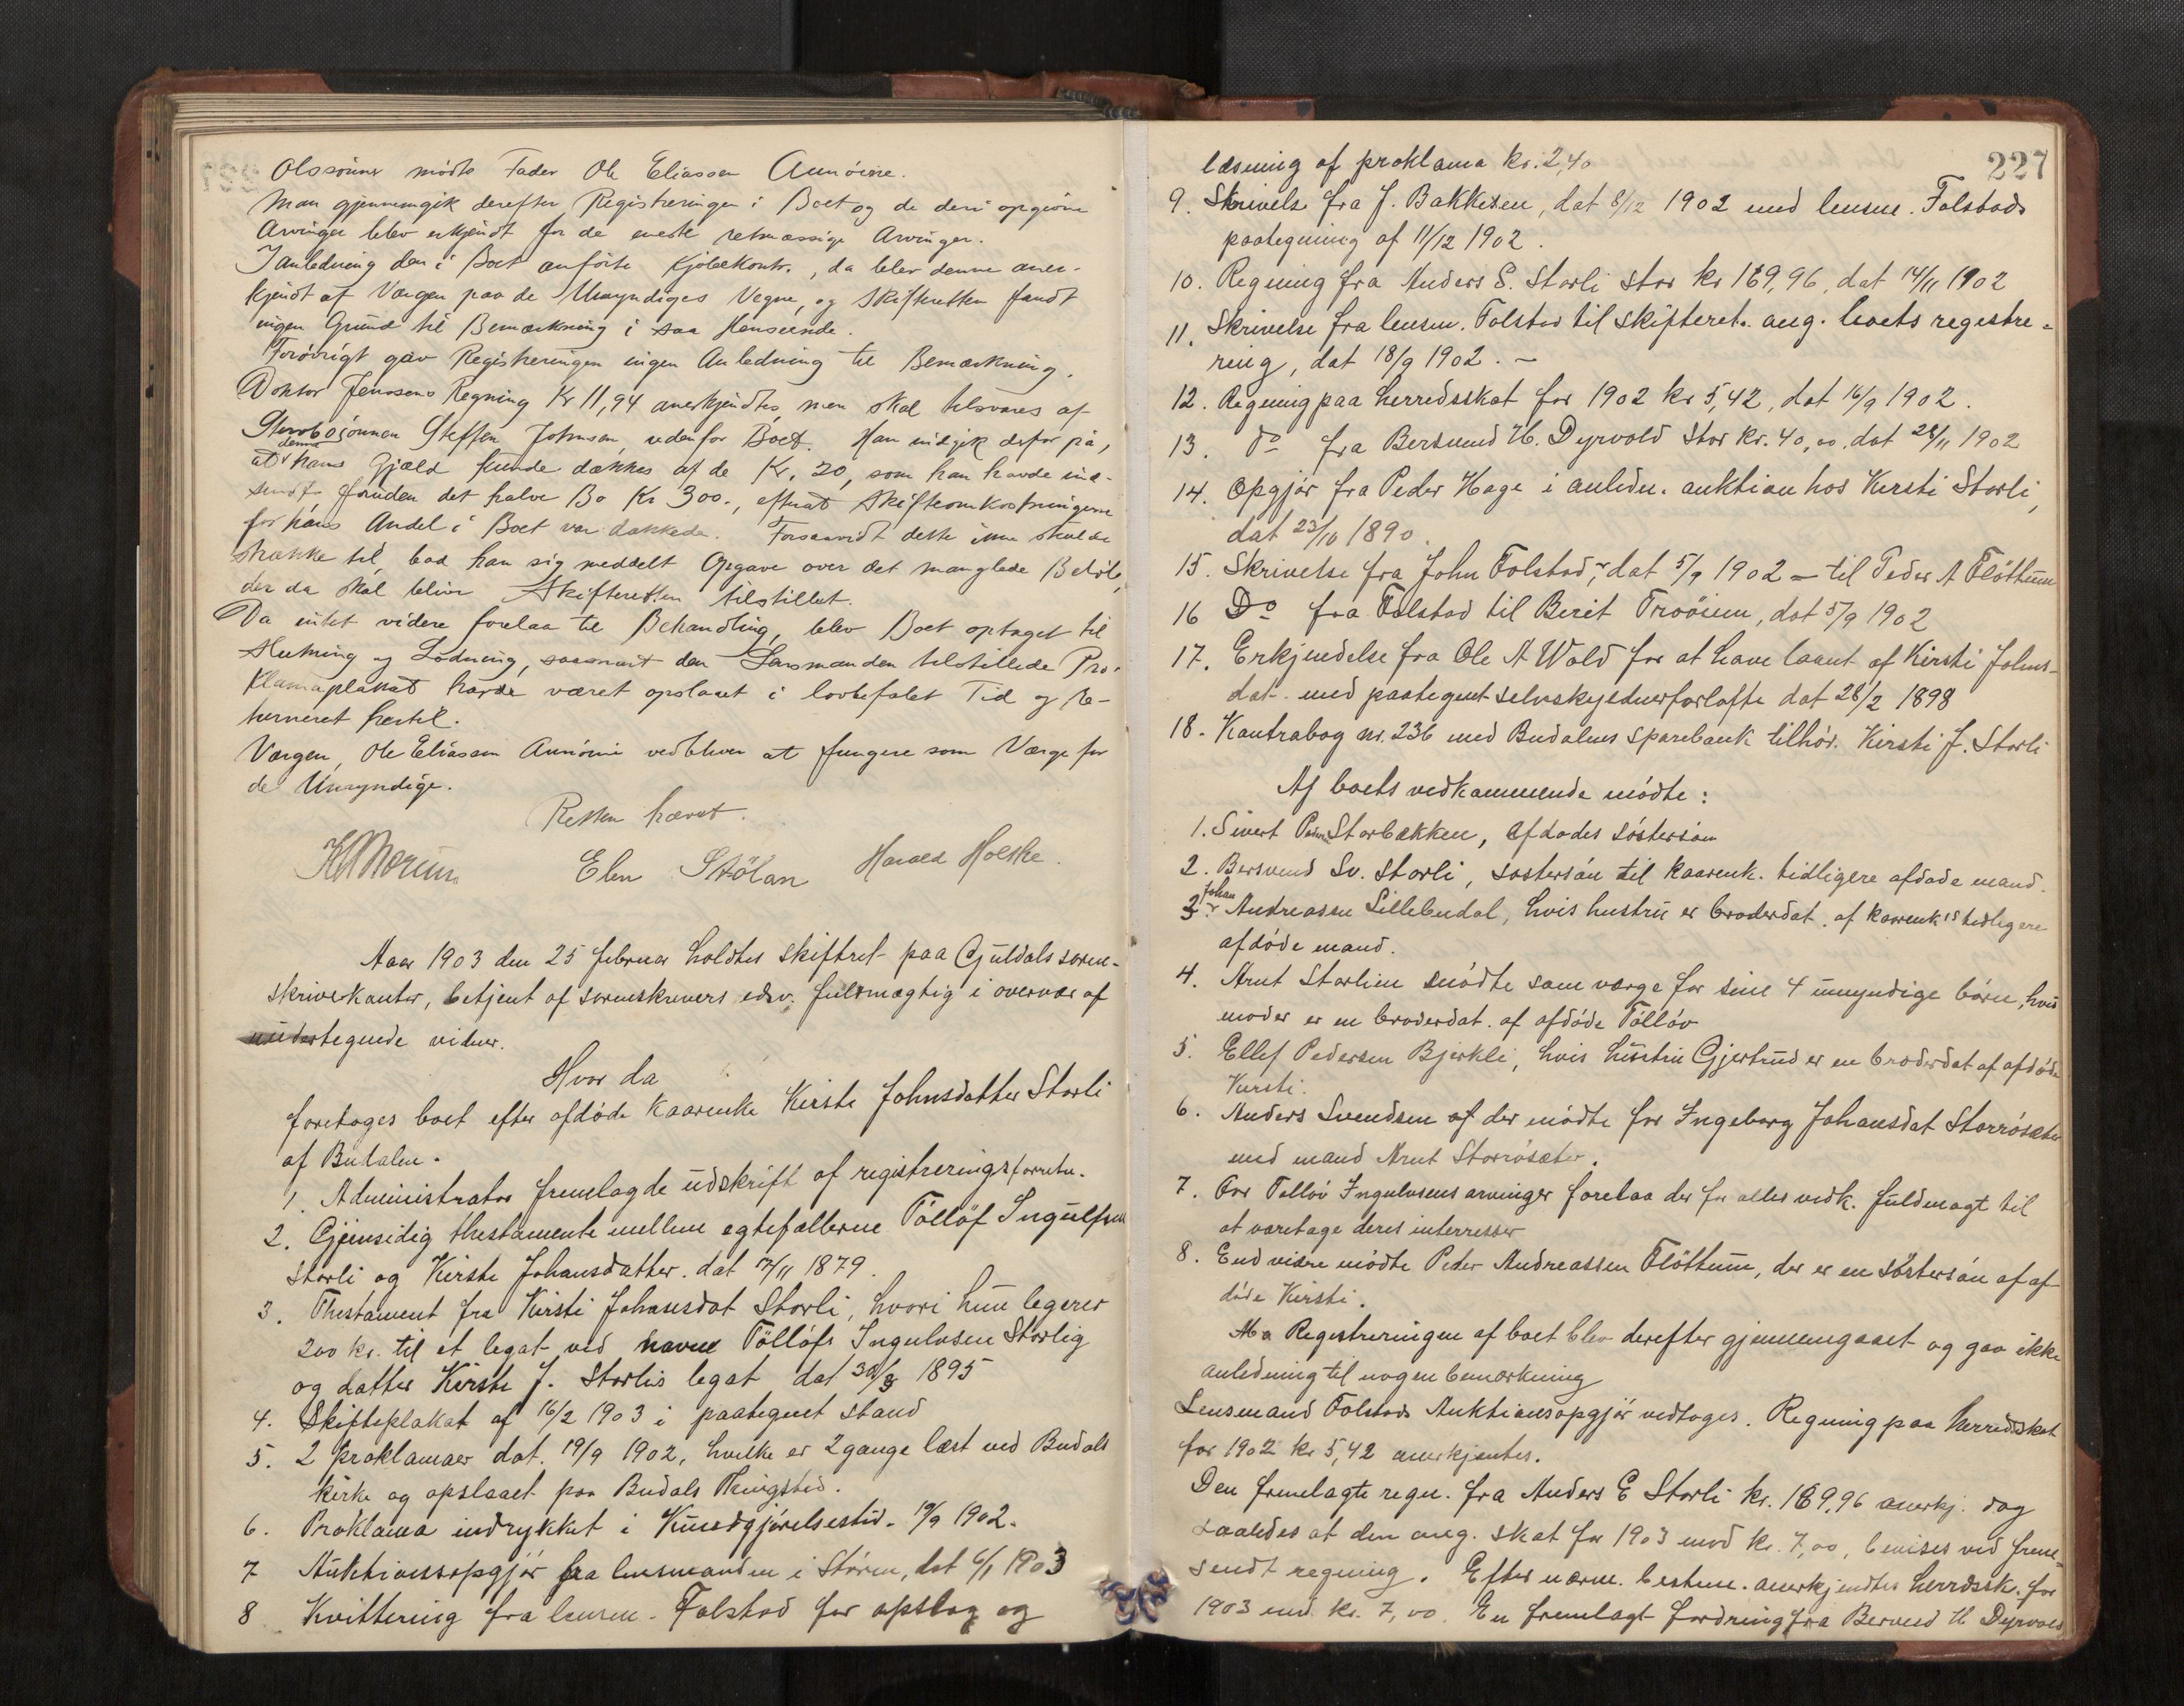 Olssönner mödte Fader Ole Eliassen Aunöiene.
Man gjennemgik derefter Registreringen i Boet og de deri opgivne
Arvinger blev erkjendt for de eneste retmæssige Arvinger.
I anledning den i Boet anförte Kjöbekontr., da blev denne aner-
kjendt af Værgen paa de Umyndiges Vegne, og Skifteretten fandt
ingen Grund til Bemærkning i saa Henseende.
Forövrigt gav Registreringen ingen Anledning til Bemærkning.
Doktor Jenssens Regning Kr 11,94 anerkjendtes, men skal tilsvares af
Sterbosönnen Steffen Johnsen, udenfor Boet. Han indgik derfor på,
at denne hans Gjæld kunde dækkes af de Kr. 20, som han havde ind-
sendt foruden det halve Bo Kr 300., efterat Skifteomkostningerne
for hans Andel i Boet var dækkede. Forsaavidt dette ikke skulde
strække til, bad han sig meddelt Opgave over det manglede Belöb,
der da skal blive Skifteretten tilstillet.
Da intet videre forelaa til Behandling, blev Boet optaget til
Slutning og Lodning, saasnart den Lensmanden tilstillede Pro-
klamaplakat havde været opslaaet i lovbefalet Tid og re-
turneret hertil.
Værgen, Ole Eliassen Aunöine vedbliver at fungere som Værge for
de Umyndige.
Retten hævet.
Elen Stölan Harald Holske.
Aar 1903 den 25 februar holdtes skifteret paa Guldals soren-
skriverkontor, betjent af sorenskrivers edsv. fuldmægtig i overvær af
undertegnede vidner.
Hvor da
foretoges boet efter afdöde kaarenke Kirsti Johnsdatter Storli
af Budalen.
1. Administrator fremlagde udskrift af registreringsforretn.
2. Gjensidig thestamente mellem egtefællerne Töllöf Ingulfsen
Storli og Kirsti Johansdatter. dat 17/11 1879.
3. Thestament fra Kirsti Johansdat Storli, hvori hun legerer
200 kr. til et legat ved navn Töllöfs Ingulvsen Storlig
og datter Kirsti J. Storlis legat dat 30/3 1895
4. Skifteplakat af 16/2 1903 i paategnet stand
5. 2 proklamaer dat. 19/9 1902, hvilke er 2 gange læst ved Budals
kirke og opslaaet paa Budals Thingsted.
6. Proklama indrykket i Kundgjörelsestid. 19/9 1902.
7 Auktionsopgjör fra lensmanden i Stören, dat 6/1 1903
8 Kvittering fra lensm. Folstad for opslag og
227
læsning af proklama kr. 2,40
9. Skrivelse fra J. Bakkesen, dat 8/12 1902 med lensm. Folstads
paategning af 11/12 1902.
10. Regning fra Anders E. Storli stor kr 169,96, dat 14/11 1902
11. Skrivelse fra lensm. Folstad til skifteret. ang. boets registre-
ring, dat 18/9 1902. –
12. Regning paa herredsskat for 1902 kr 5,42, dat 16/9 1902.
13. do fra Bersvend H. Dyrvold stor kr. 40,00. dat 28/11 1902
14. Opgjör fra Peder Hage i anledn. auktion hos Kirsti Storli,
dat 23/10 1890.
15. Skrivelse fra John Folstad, dat 5/9 1902 – til Peder A Flöttum
16 Do fra Folstad til Berit Troöien, dat 5/9 1902
17. Erkjendelse fra Ole A Wold for at have laant af Kirsti Johns-
dat. med paategnet selvskyldnerforlöfte dat 28/2 1898
18. Kontrabog nr. 236 med Budalens sparebank tilhör. Kirsti J. Storli
Af boets vedkommende mödte:
1. Sivert Storbækken, afdödes söstersön
2. Bersvend Sv. Storli, söstersön til kaarenk. tidligere afdöde mand.
3 Johan Andreassen Lillebudal, hvis hustru er broderdat. af kaarenk's tidligere
afdöde mand.
4. Arnt Storlien mödte som værge for sine 4 umyndige börn, hvis
moder er en broderdat. af afdöde Töllöv
5. Ellef Pedersen Bjerkli, hvis hustru Gjertrud er en broderdat af afdöde
Kirsti.
6. Anders Svendsen af der mödte for Ingeborg Johansdat Storrösæter
med mand Arnt Storrösæter.
7. For Tollöv Ingulvsens arvinger forelaa der for alles vedk. fuldmagt til
at varetage deres interresser
8. End vidre mödte Peder Andreassen Flöttum, der er en söstersön af af-
döde Kirsti.
Registreringen af boet blev derefter gjennemgaaet og gav ikke
anledning til nogen bemærkning
Lensmand Folstads Auktionsopgjör vedtoges. Regning paa herredsskat
for 1902 kr 5,42 anerkjentes.
Den fremlagte regn. fra Anders E Storli kr. 169,96 anerkj. dog
saaledes at den ang. skat for 1903 med kr. 7,00, bevises ved frem-
sendt regning. Efter nærm. bestem. anerkjendtes herredssk. for
1903 med kr. 7,00. En fremlagt fordring fra Bersvend H Dyrvold